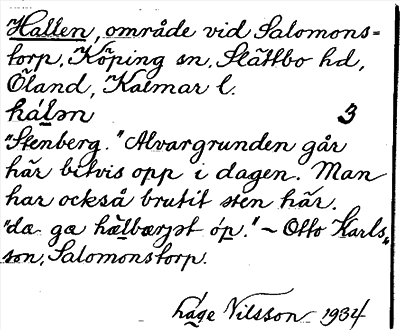 Hallen, område vid Salomons=
torp, Köping sn, Slättbo hd,
Öland, Kalmar l.
hálən 3
"Stenberg." Alvargrunden går
här bitvis opp i dagen. Man
har också brutit sten här.
"da ga hælbærjət óp." ~ Otto Karls„
son, Salomonstorp.
Håge Nilsson 1934